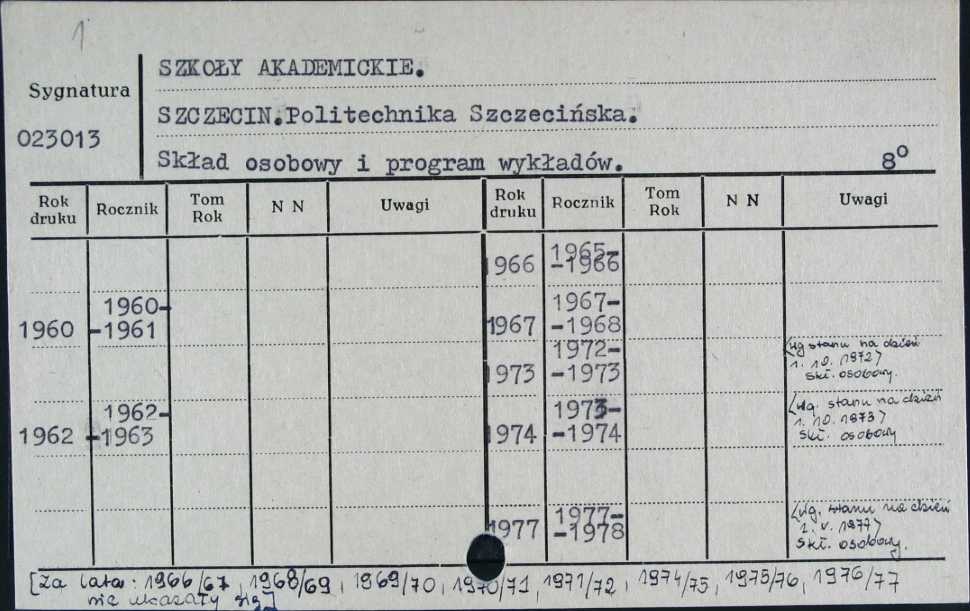 1
SZKOŁY AKADEMICKIE.
Sygnatura
SZCZECIN.Politechnika Szczecińska.
023013
Skład osobowy i program wykładów. 8°
Rok druku Rocznik Tom Rok N N Uwagi Rok druku Rocznik Tom Rok N N Uwagi
1966 1965-
-1966
1960 1960-
-1961
1967 1967-
-1968
1973 1972-
-1973
<wg stanu na dzień
1. 10. 1972>
Skł. osobowy.
1962 1962-
-1963
1974 1973-
-1974
<wg. stanu na dzień
1. 10. 1973>
Skł. osobowy
1977 1977-
-1978
<wg. stanu na dzień
1. V. 1977>
Skł. osobowy.
[Za lata: 1966/67, 1968/69, 1969/70, 1970/71, 1971/72, 1974/75, 1975/76, 1976/77
nie ukazały się]